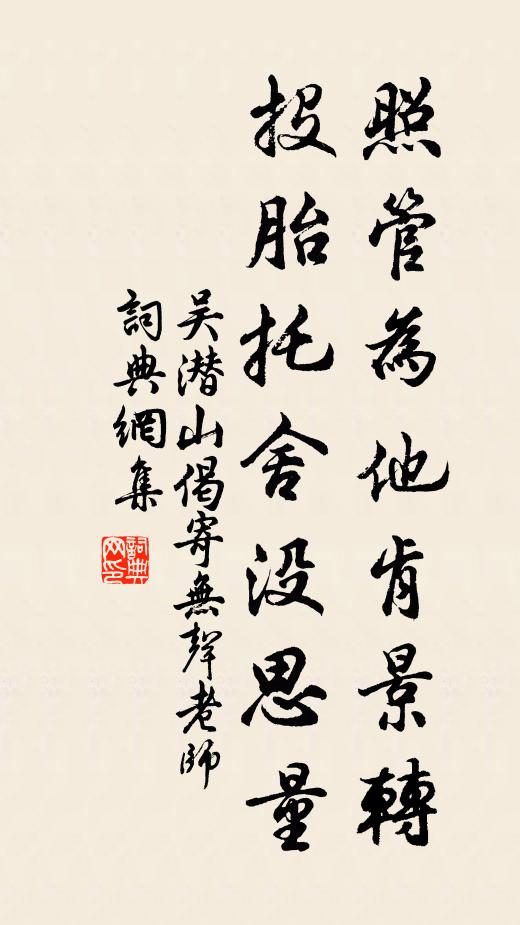 照管為他肯景轉
投胎托舍没思量
吴潜山偈寄無聲老師
詞典網集
詞典网印